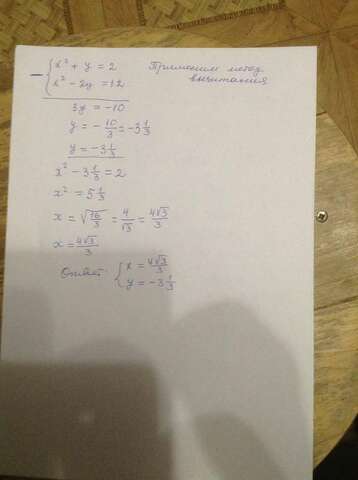 x² + y = 2 Применим метод
x² - 2y = 12 вычитания
3y = -10
y = - 10/3 = -3 1/3
y = -3 1/3
x² - 3 1/3 = 2
x² = 5 1/3
x = √16/3 = 4/√3 = 4√3/3
x = 4√3/3
Ответ: { x = 4√3/3
y = -3 1/3